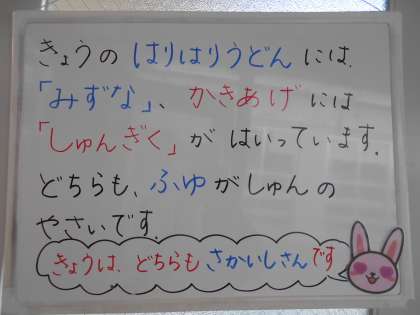 きょうの はりはりうどん には.
「みずな」、かきあげ には
「しゅんぎく」が はいっています.
どちらも、ふゆがしゅんの
やさいです.
きょうは、どちらも さかいしさん です